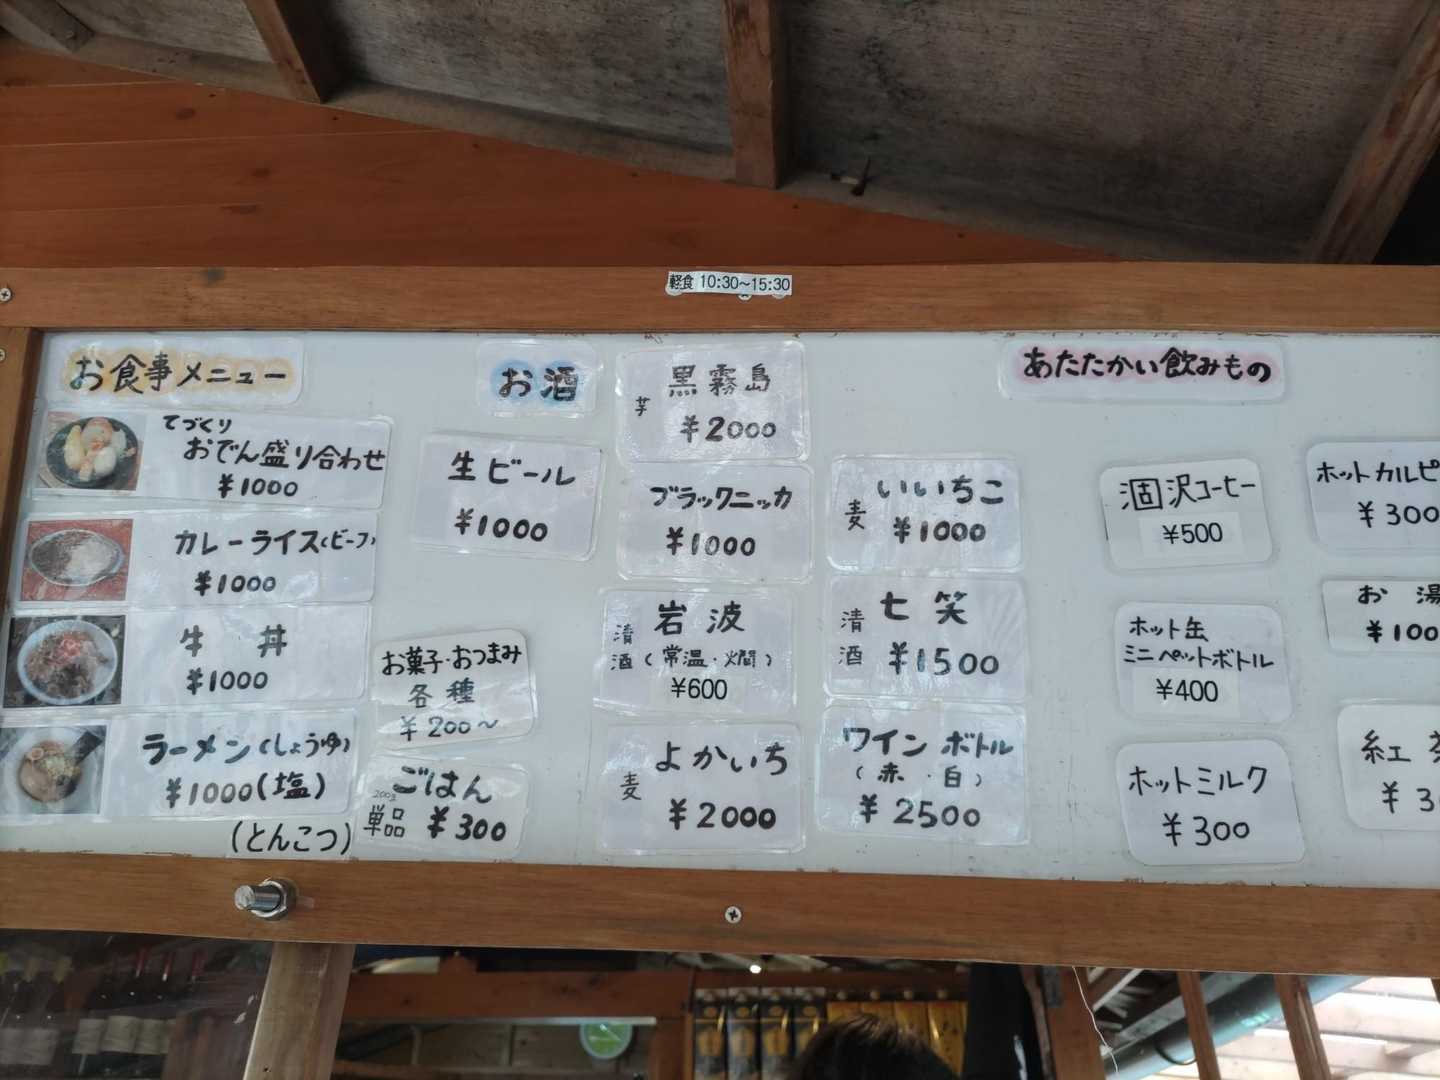 軽食 10:30～15:30
お食事メニュー
てづくり
おでん盛り合わせ
¥1000
カレーライス(ビーフ)
¥1000
牛 丼
¥1000
ラーメン(しょうゆ)
¥1000(塩)
(とんこつ)
お酒
生ビール
¥1000
お菓子・おつまみ
各種
¥200～
ごはん
単品 ¥300
黒霧島
芋
¥2000
ブラックニッカ
¥1000
清酒 岩波
(常温・燗)
¥600
麦 よかいち
¥2000
麦 いいちこ
¥1000
清酒 七笑
¥1500
ワイン ボトル
(赤・白)
¥2500
あたたかい飲みもの
涸沢コーヒー
¥500
ホット缶
ミニペットボトル
¥400
ホットミルク
¥300
ホットカルピ
¥300
お 湯
¥100
紅
¥3